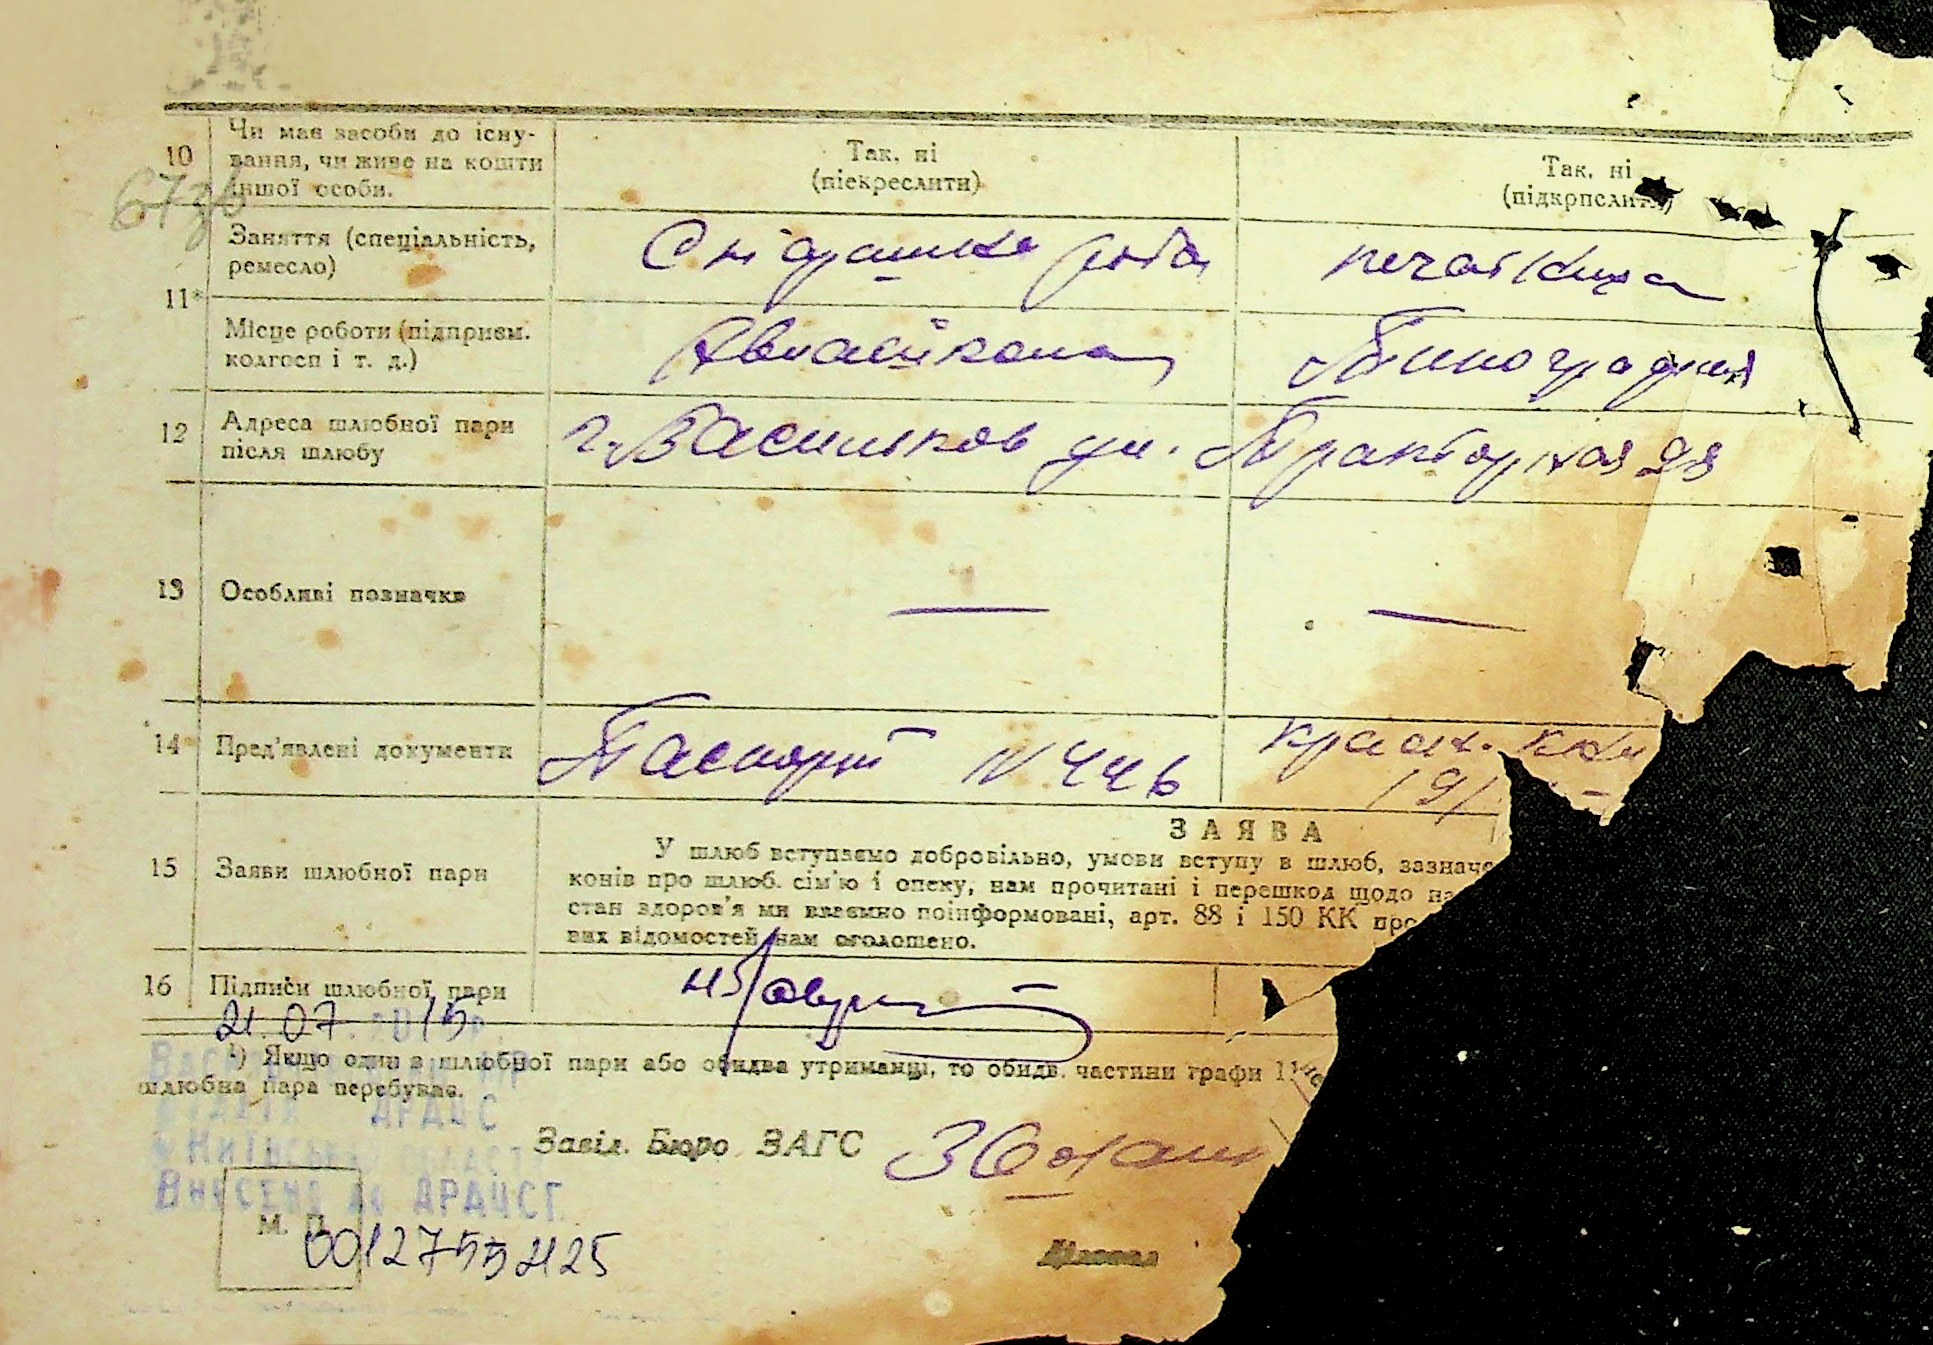 10
Чи має засоби до існу-
вання, чи живе на кошти
іншої особи.
Так, ні
(піекреслити)
Так, ні
(підкрпслити)
67зв
11*
Заняття (спеціальність,
ремесло)
печатница
Місце роботи (підприєм.
колгосп і т. д.)
Авиашкола
Типография
12
Адреса шлюбної пари
після шлюбу
г. Васильков ул. Тракторная 28
13
Особливі позначки
—
—
14
Пред'явлені документи
Паспорт N 446
красн. кни
191
15
Заяви шлюбної пари
ЗАЯВА
У шлюб вступаємо добровільно, умови вступу в шлюб, зазначе
конів про шлюб. сім'ю і опеку, нам прочитані і перешкод щодо на
стан здоров'я ми взаємно поінформовані, арт. 88 і 150 КК про
вих відомостей нам оголошено.
16
Підписи шлюбної пари
21.07. 2015р.
¹) Якщо один в шлюбної пари або обидва утриманці, то обидв. частини графи 11
шлюбна пара перебуває.
АРАЦС
Київської області
Завід. Бюро ЗАГС
Внесено до АРАЦСГ.
М. П.
00127552125
Діловод